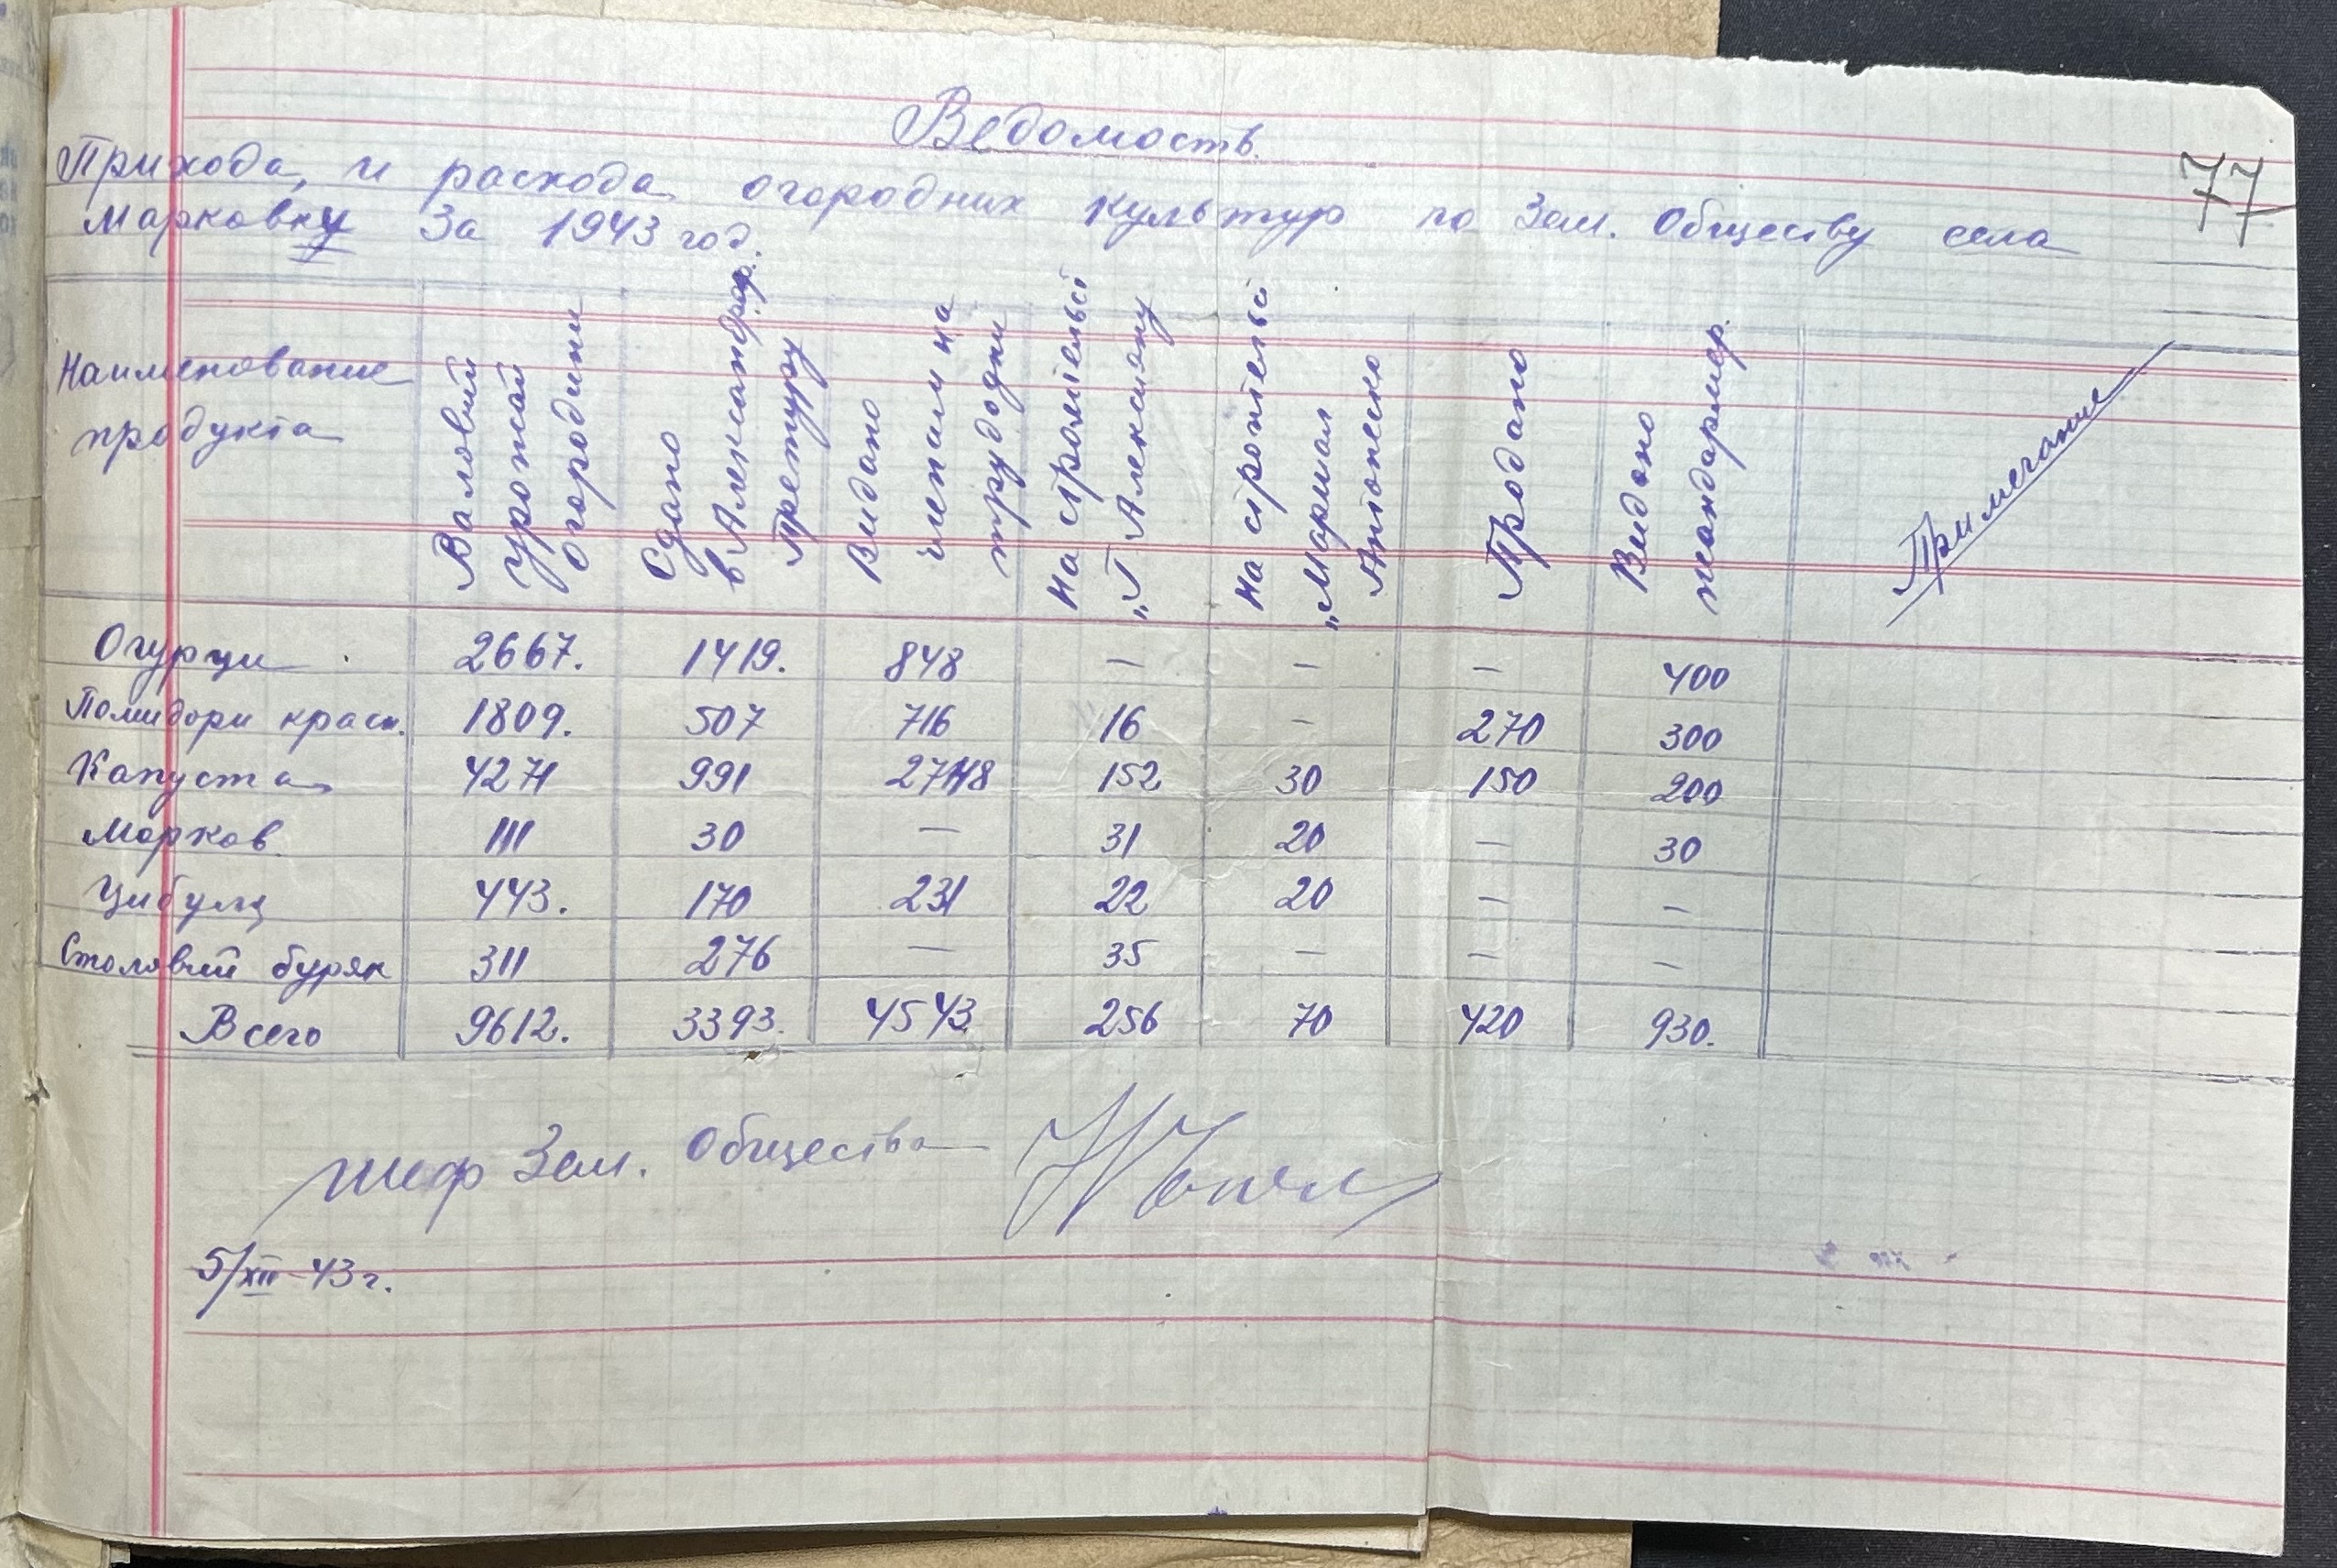 77
Ведомость.
Прихода, и расхода огородних культур по Зем. Обществу села
Марковку за 1943 год.
Наименование продукта
Валовий урожай огородини
Сдано в Александров. Претуру
Видано членам на трудодни
На строительст „Г. Алексяну
На строительст „Маршал Антонеско
Продано
Видано жандармер.
Примечание
Огурци 2667. 1419. 848 — — — 400
Помидори красн. 1809. 507 716 16 — 270 300
Капуста 4271 991 2748 152 30 150 200
Морков 111 30 — 31 20 — 30
Цибуля 443. 170 231 22 20 — —
Столовий буряк 311 276 — 35 — — —
Всего 9612. 3393. 4543. 256 70 420 930.
шеф Зем. Общества
5/XII-43 г.